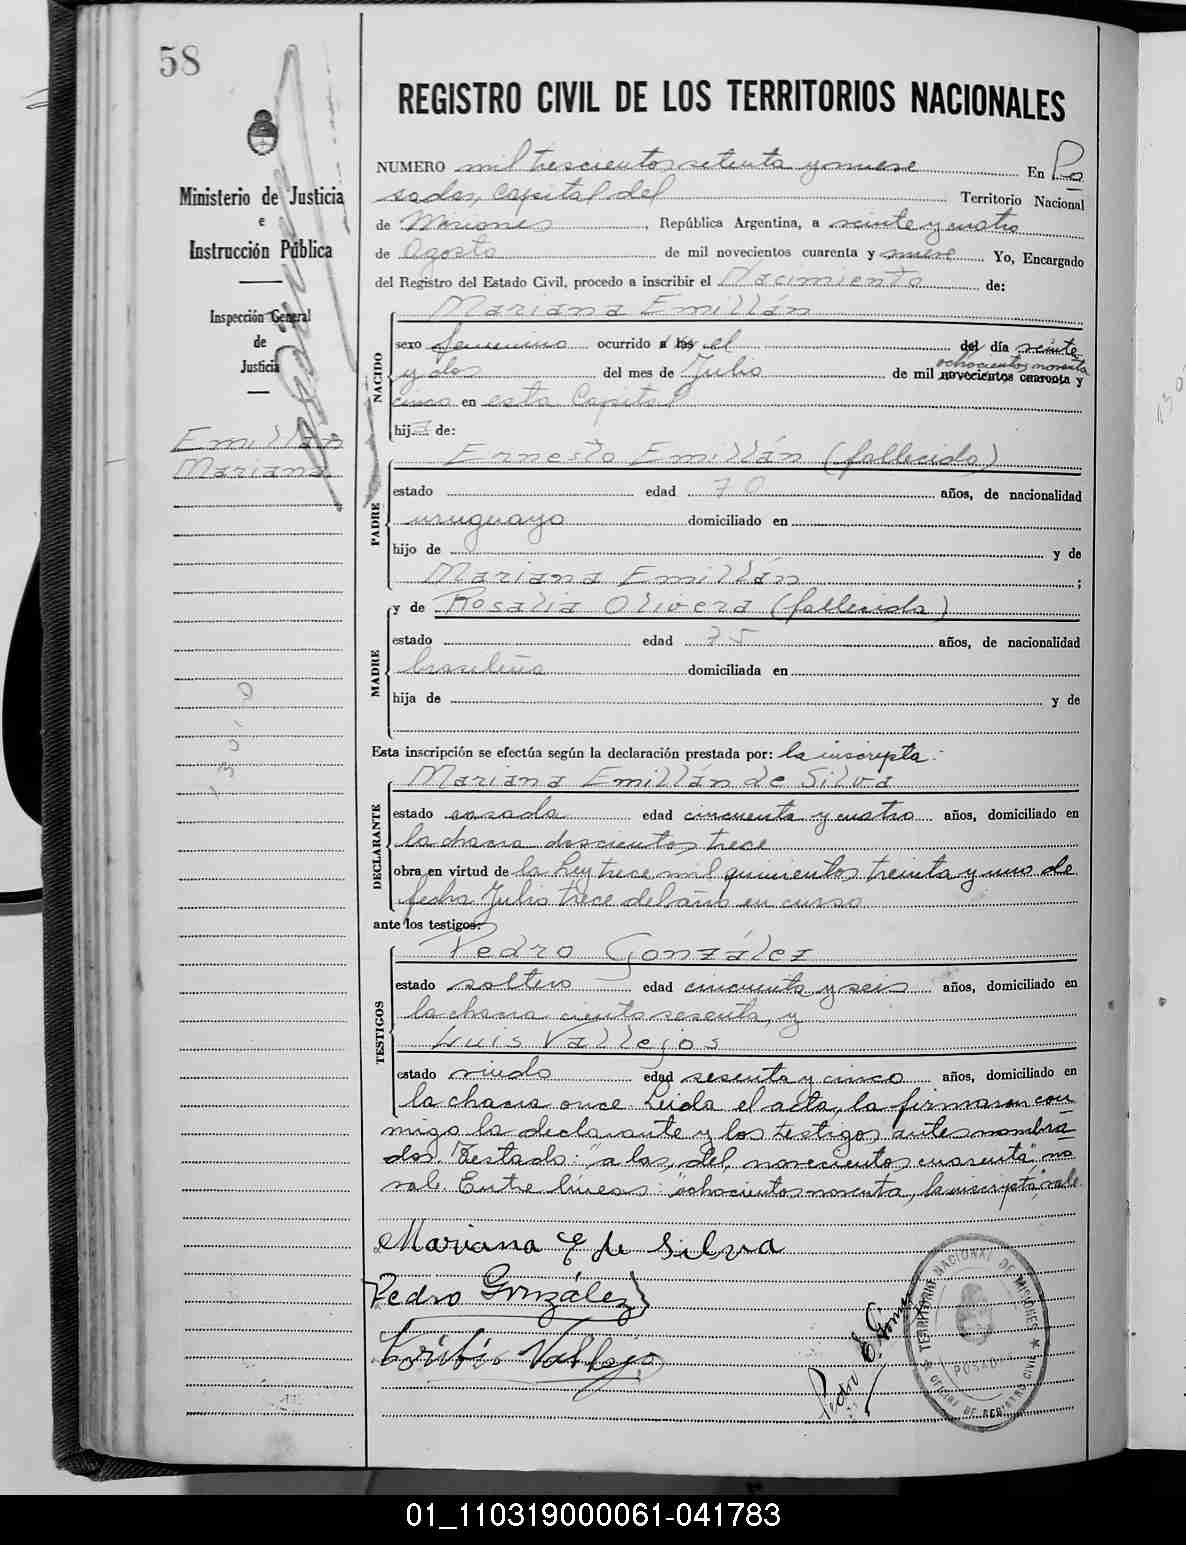 58
REGISTRO CIVIL DE LOS TERRITORIOS NACIONALES
Ministerio de Justicia
e
Instrucción Pública
Inspección General
de
Justicia
Emillán
Mariana
NUMERO mil trescientos setenta y nueve En Po
sadas, capital del Territorio Nacional
de Misiones, República Argentina, a veinte y cuatro
de Agosto de mil novecientos cuarenta y nueve Yo, Encargado
del Registro del Estado Civil, procedo a inscribir el Nacimiento de:
NACIDO
Mariana Emillán
sexo femenino ocurrido a las el del día veinte
y dos del mes de Julio de mil novecientos cuarenta y ochocientos noventa
cinco en esta Capital
hija de:
PADRE
Ernesto Emillán (fallecido)
estado edad 70 años, de nacionalidad
uruguayo domiciliado en
hijo de y de
Mariana Emillán ;
MADRE
y de Rosalia Olivera (fallecida)
estado edad 75 años, de nacionalidad
brasileña domiciliada en
hija de y de
Esta inscripción se efectúa según la declaración prestada por: la inscripta.
DECLARANTE
Mariana Emillán de Silva
estado casada edad cincuenta y cuatro años, domiciliado en
la chacra doscientos trece
obra en virtud de la Ley trece mil quinientos treinta y uno de
fecha Julio trece del año en curso
ante los testigos:
TESTIGOS
Pedro González
estado soltero edad cincuenta y seis años, domiciliado en
la chacra ciento sesenta, y
Luis Vallejos
estado viudo edad sesenta y cinco años, domiciliado en
la chacra once Leida el acta, la firmaron con
migo la declarante y los testigos antes nombra
dos. Testado: "a las, del, novecientos cuarenta," no
vale. Entre líneas: "ochocientos noventa, la inscripta," vale.
Mariana E de Silva
Pedro González
Toribio Vallejo
Pedro E. Gómez
TERRITORIO NACIONAL DE MISIONES
POSADAS
OFICINA DE REGISTRO CIVIL
01_110319000061-041783